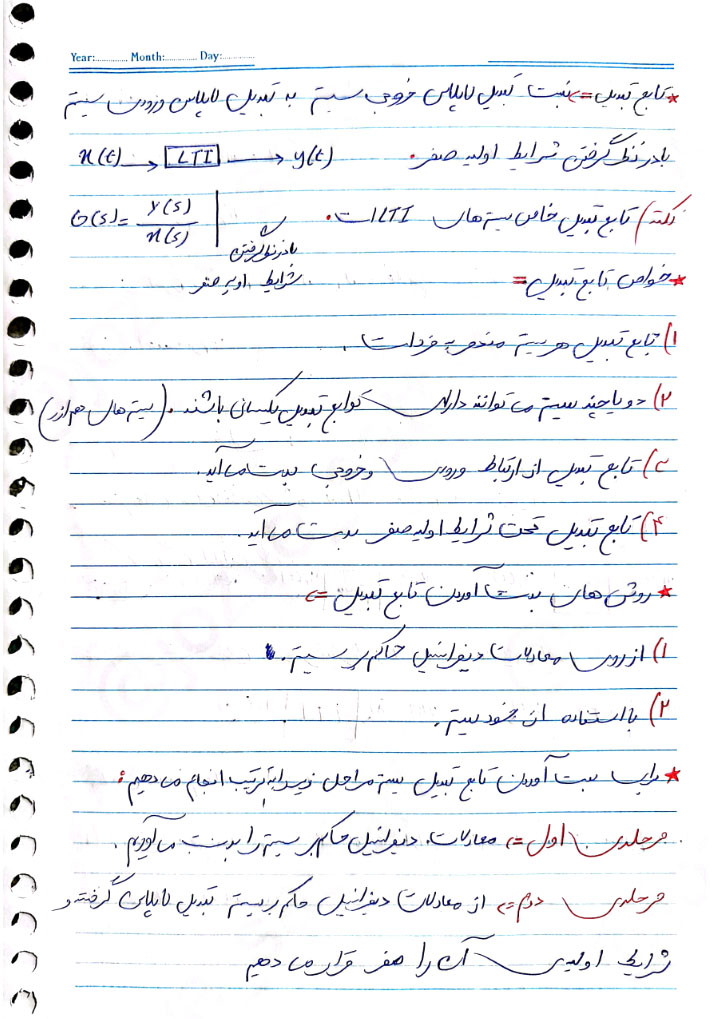 Year:............ Month:............ Day:............
★ تابع تبدیل => نسبت تبدیل لاپلاس خروجی سیستم به تبدیل لاپلاس ورودی سیستم
با در نظر گرفتن شرایط اولیه صفر. x(t) → LTI → y(t)
نکته) تابع تبدیل خاص سیستم های LTI است. G(s) = Y(s) / X(s) |
با در نظر گرفتن
شرایط اولیه صفر
★ خواص تابع تبدیل =
۱) تابع تبدیل هر سیستم منحصر به فرد است.
۲) دو یا چند سیستم می توانند دارای توابع تبدیل یکسانی باشند. (سیستم های هم ارز)
۳) تابع تبدیل از ارتباط ورودی و خروجی بدست می آید.
۴) تابع تبدیل تحت شرایط اولیه صفر بدست می آید.
★ روش های بدست آوردن تابع تبدیل =>
۱) از روی معادلات دیفرانسیل حاکم بر سیستم.
۲) با استفاده از خود سیستم.
★ برای بدست آوردن تابع تبدیل سیستم مراحل زیر را به ترتیب انجام می دهیم:
مرحله ی اول => معادلات دیفرانسیل حاکم بر سیستم را بدست می آوریم.
مرحله ی دوم => از معادلات دیفرانسیل حاکم بر سیستم تبدیل لاپلاس گرفته و
شرایط اولیه ی آن را صفر قرار می دهیم